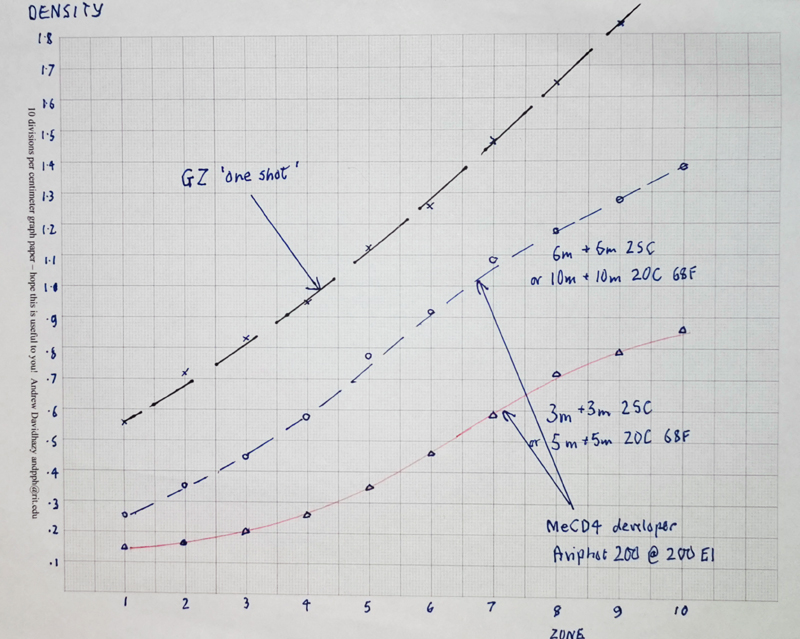 DENSITY
1.8
1.7
1.6
1.5
1.4
1.3
1.2
1.1
1.0
.9
.8
.7
.6
.5
.4
.3
.2
.1
10 divisions per centimeter graph paper -- hope this is useful to you! Andrew Davidhazy andpph@rit.edu
GZ 'one shot'
6m + 6m 25C
or 10m + 10m 20C 68F
3m + 3m 25C
or 5m + 5m 20C 68F
MeCD4 developer
Aviphot 200 @ 200 EI
1 2 3 4 5 6 7 8 9 10
ZONE